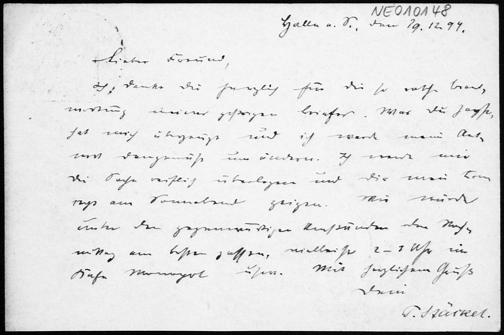 NE010148
Halle a. S., den 19.12.94.
Lieber Freund,
Ich danke dir herzlich für die so rasche Beant-
wortung meines gestrigen Briefes. Was du sagst,
hat mich überzeugt und ich werde mein Ant-
wort demgemäss um ändern. Ich werde mir
die Sache reiflich überlegen und dir mein Con-
cept am Sonnabend zeigen. Mir würde
unter den gegenwärtigen Umständen der Nach-
mittag am besten passen, vielleicht 2-3 Uhr im
Cafe Monopol. Mit herzlichem Gruss
Dein
P. Stäckel.